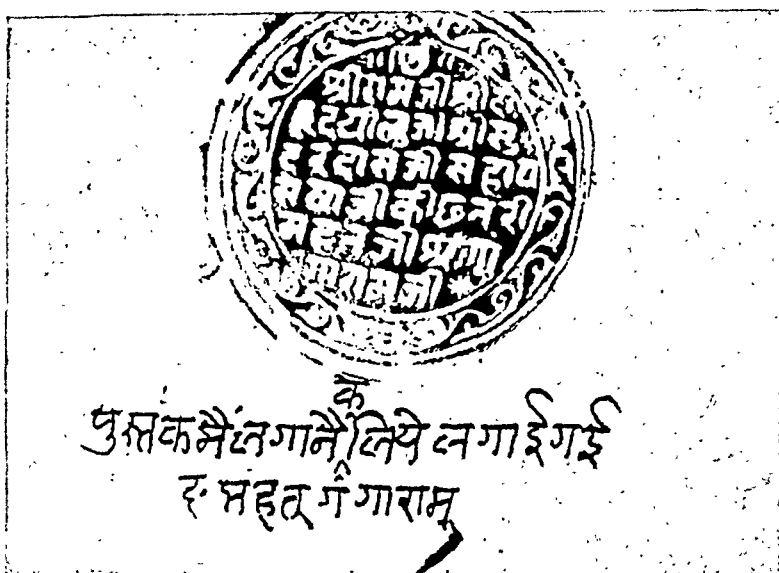 श्रीरामजी श्री
दयालजी श्री सु
दरदासजी सहाय
जी की छतरी
महंतजी श्री गंगा
रामजी
के
पुस्तक मैं लगानै लिये लगाई गई
द॰ महन्त् गंगाराम्